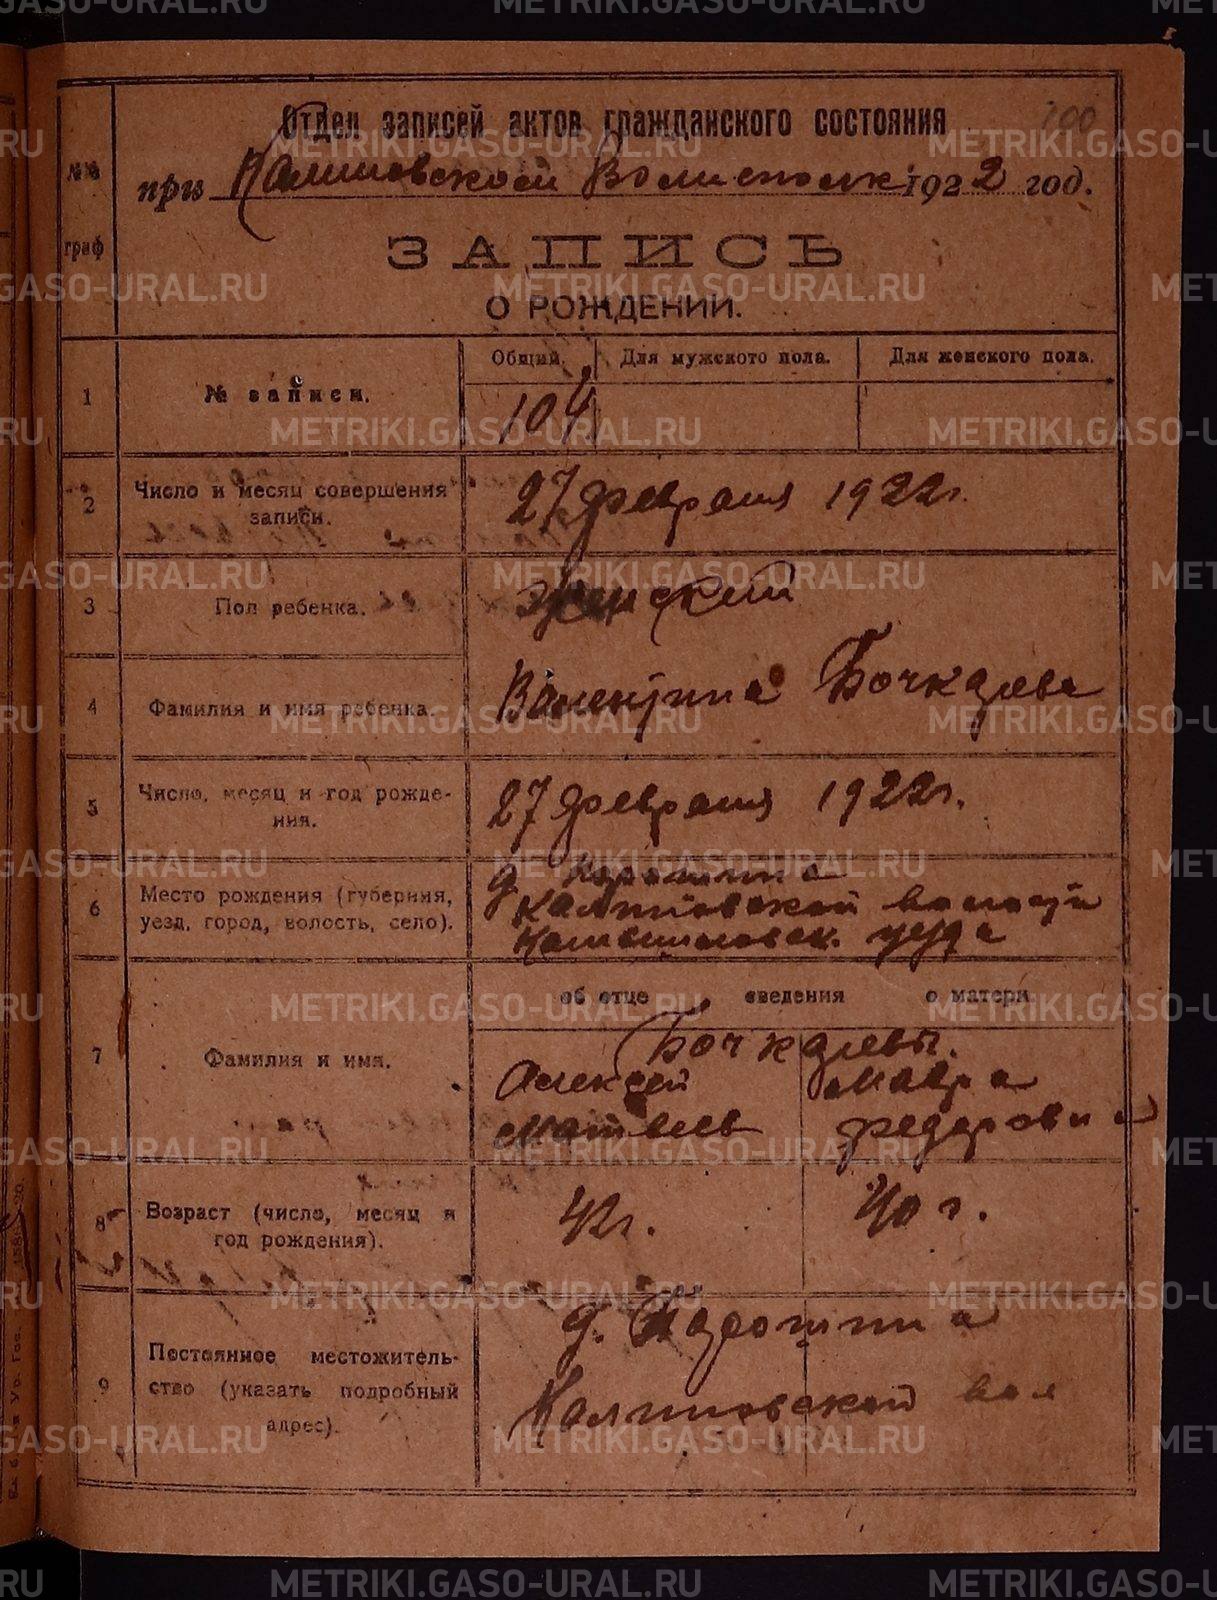 METRIKI.GASO-URAL.RU
Отдел записей актов гражданского состояния
100
№№ граф
при Калиновской Волисполк 1922 год.
ЗАПИСЬ
О РОЖДЕНИИ.
Общий. Для мужского пола. Для женского пола.
1 № записи. 104
2 Число и месяц совершения записи. 27 февраля 1922 г.
3 Пол ребенка. Женский
4 Фамилия и имя ребенка. Валентина Бочкарева
5 Число, месяц и год рожде-
ния. 27 февраля 1922 г.
6 Место рождения (губерния,
уезд, город, волость, село). д
Калиновской волости
уезда
об отце сведения о матери.
7 Фамилия и имя. Бочкаревы.
Алексей Мавра
Матвеев Федоровна
8 Возраст (число, месяц и
год рождения). 42 г. 40 г.
9 Постоянное местожитель-
ство (указать подробный
адрес). д.
Калиновской вол